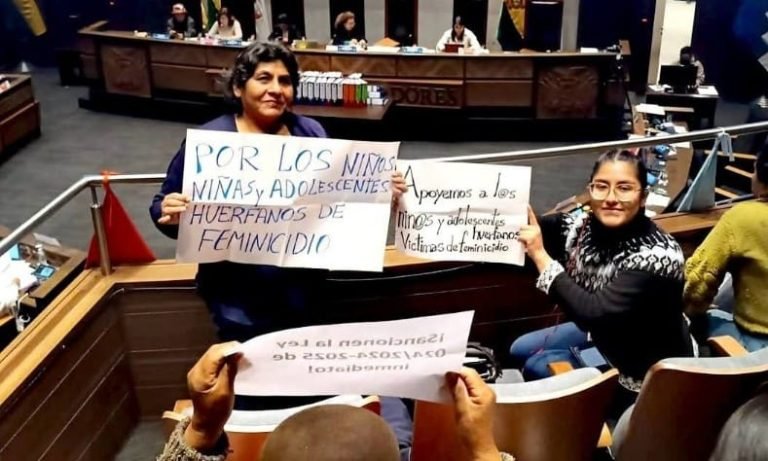 POR LOS NIÑOS,
NIÑAS y ADOLESCENTES
HUERFANOS DE
FEMINICIDIO
Apoyemos a l@s
niñ@s y adolescentes
huerfanos
Victimas de feminicidio
¡Sancionen la Ley
024/2024-2025 de
inmediato!
DORES